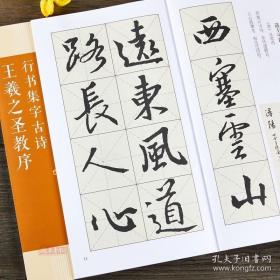 西塞雲山
遠東風道
路長人心
行书集字古诗
王羲之圣教序
孔夫子旧书网